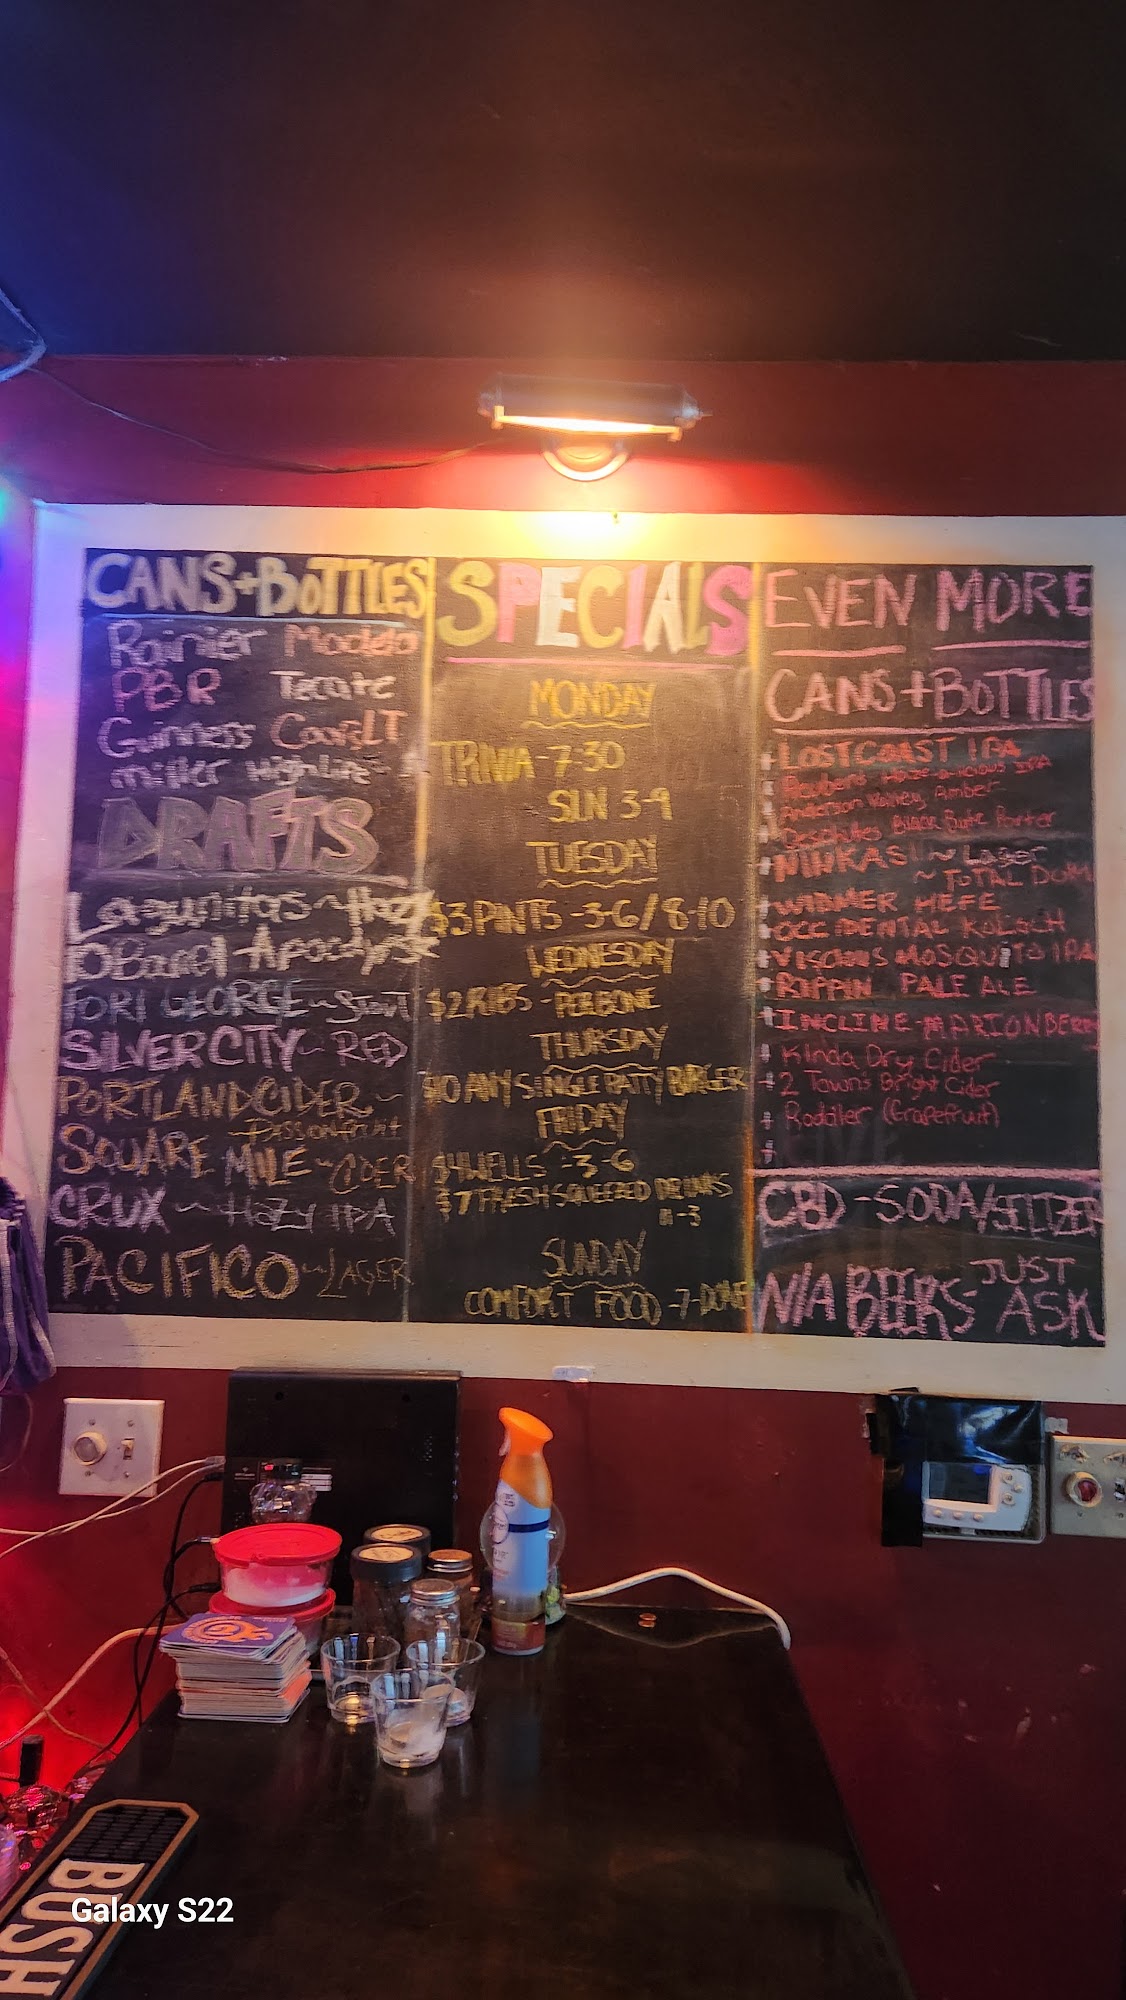 CANS+BOTTLES
Rainier Modelo
PBR Tecate
Guinness Coors LT
miller High Life
DRAFTS
Lagunitas ~ Hazy
10 Barrel - Apocalypse
FORT GEORGE ~ Stout
SILVER CITY ~ RED
PORTLAND CIDER ~
Passionfruit
SQUARE MILE ~ CIDER
CRUX ~ HAZY IPA
PACIFICO ~ LAGER
SPECIALS
MONDAY
TRIVIA - 7-30
SIN 3-9
TUESDAY
$3 PINTS - 3-6/8-10
WEDNESDAY
$2 RIBS - PER BONE
THURSDAY
$10 ANY SINGLE PATTY BURGER
FRIDAY
$4 WELLS - 3-6
$7 FRESH SQUEEZED DRINKS
11-3
SUNDAY
COMFORT FOOD - 7-DONE
EVEN MORE
CANS+BOTTLES
+ LOST COAST IPA
Reubens Haze-a-licious IPA
Anderson Valley Amber
Deschutes Black Butte Porter
+ NINKASI ~ Lager
~ TOTAL DOM
+ WIDMER HEFE
+ OCCIDENTAL KOLSCH
+ VISCOUS MOSQUITO IPA
+ RIPPIN PALE ALE
+ INCLINE - MARIONBERRY
+ Kinda Dry Cider
+ 2 Towns Bright Cider
+ Raddler (Grapefruit)
+
CBD - SODA/SELTZER
N/A BEERS - JUST
ASK
BUSH
Galaxy S22